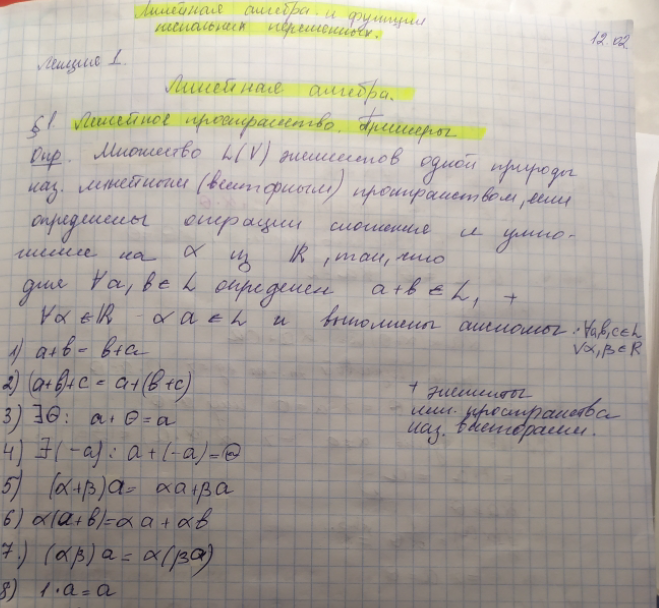 Линейная алгебра и функции
нескольких переменных.
12.02
Лекция 1.
Линейная алгебра.
§1. Линейное пространство. Примеры
Опр. Множество L(V) элементов одной природы
наз. линейным (векторным) пространством, если
определены операции сложения и умно-
жение на α из ℝ, так, что
для ∀a, b ∈ L определен a+b ∈ L, +
∀α ∈ ℝ αa ∈ L и выполнены аксиомы: ∀a,b,c∈L
∀α,β∈ℝ
1) a+b = b+a
2) (a+b)+c = a+(b+c)
3) ∃θ: a+θ=a
4) ∃(-a): a+(-a)=θ
5) (α+β)a= αa+βa
6) α(a+b)=αa+αb
7.) (αβ)a = α(βa)
8) 1·a=a
+ элементы
лин. пространства
наз. векторами.